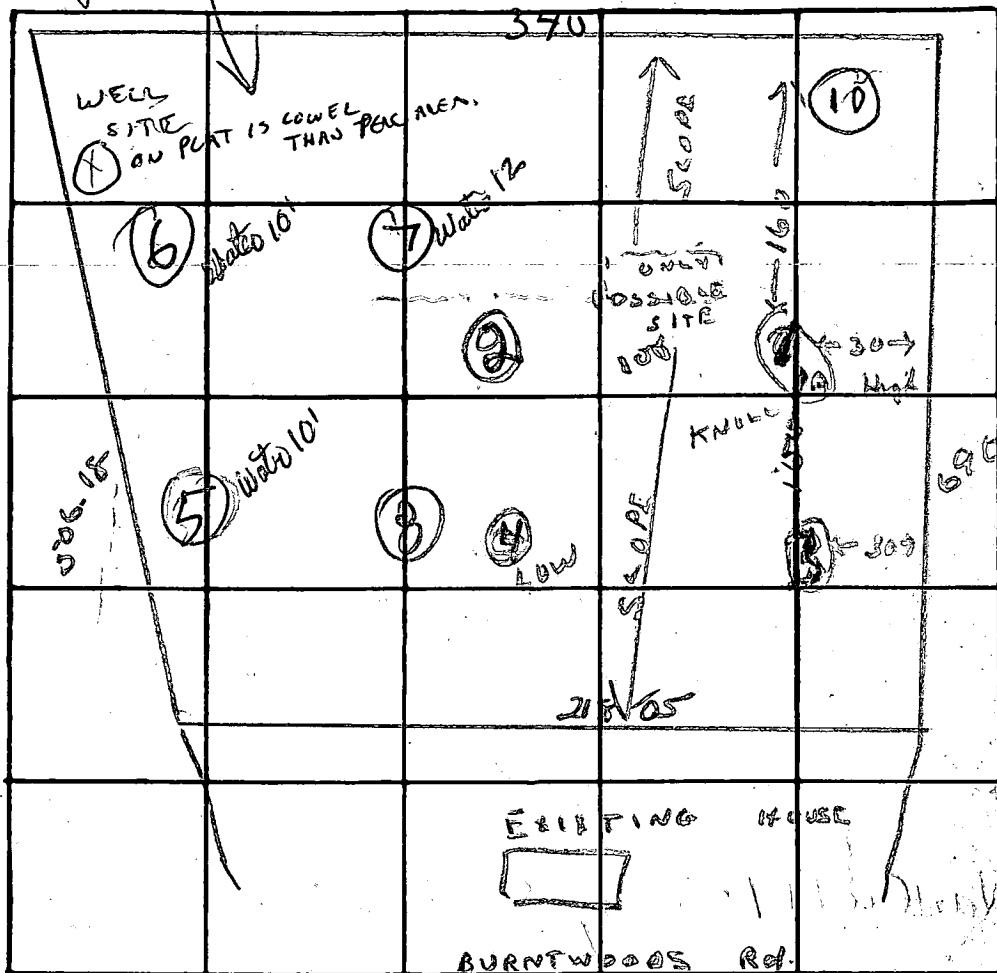 340
WELL
SITE
X ON PLAT IS LOWER
THAN PERC AREA.
10
SLOPE
160
6 Water 10'
7 Water 12
ONLY
POSSIBLE
SITE
100
2
30
High
KNOLL
506-18
5 Water 10'
8
4
LOW
SLOPE
3
30
690
218 05
EXISTING HOUSE
BURNTWOODS Rd.